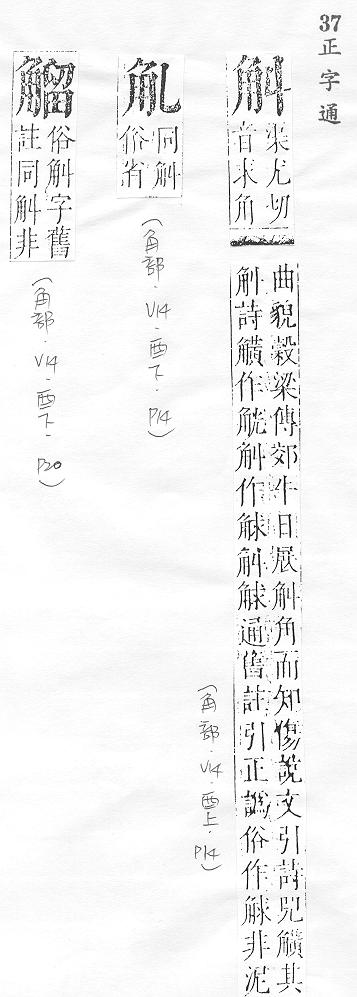 37
正字通
觓
渠尤切
音求角
曲貌穀梁傳郊牛日展觓角而知傷說文引詩兕觵其
觓詩觵作觥觓作觩觓觩通舊註引正譌俗作觩非泥
(角部.V14.酉上.P14)
同觓
俗省
(角部.V14.酉下.P14)
俗觓字舊
註同觓非
(角部.V14.酉下.P20)